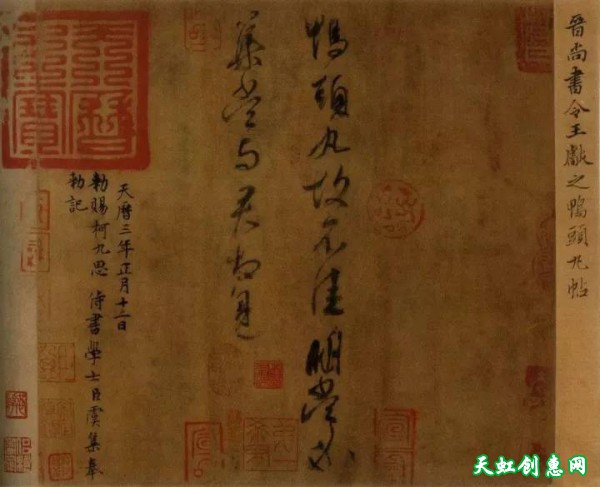 晉尚書令王獻之鴨頭丸帖
鴨頭丸故不佳明當必
集當與君相見
天曆三年正月十二日
勑賜柯九思侍書學士臣虞集奉
勑記
天曆之寶
天虹创惠网